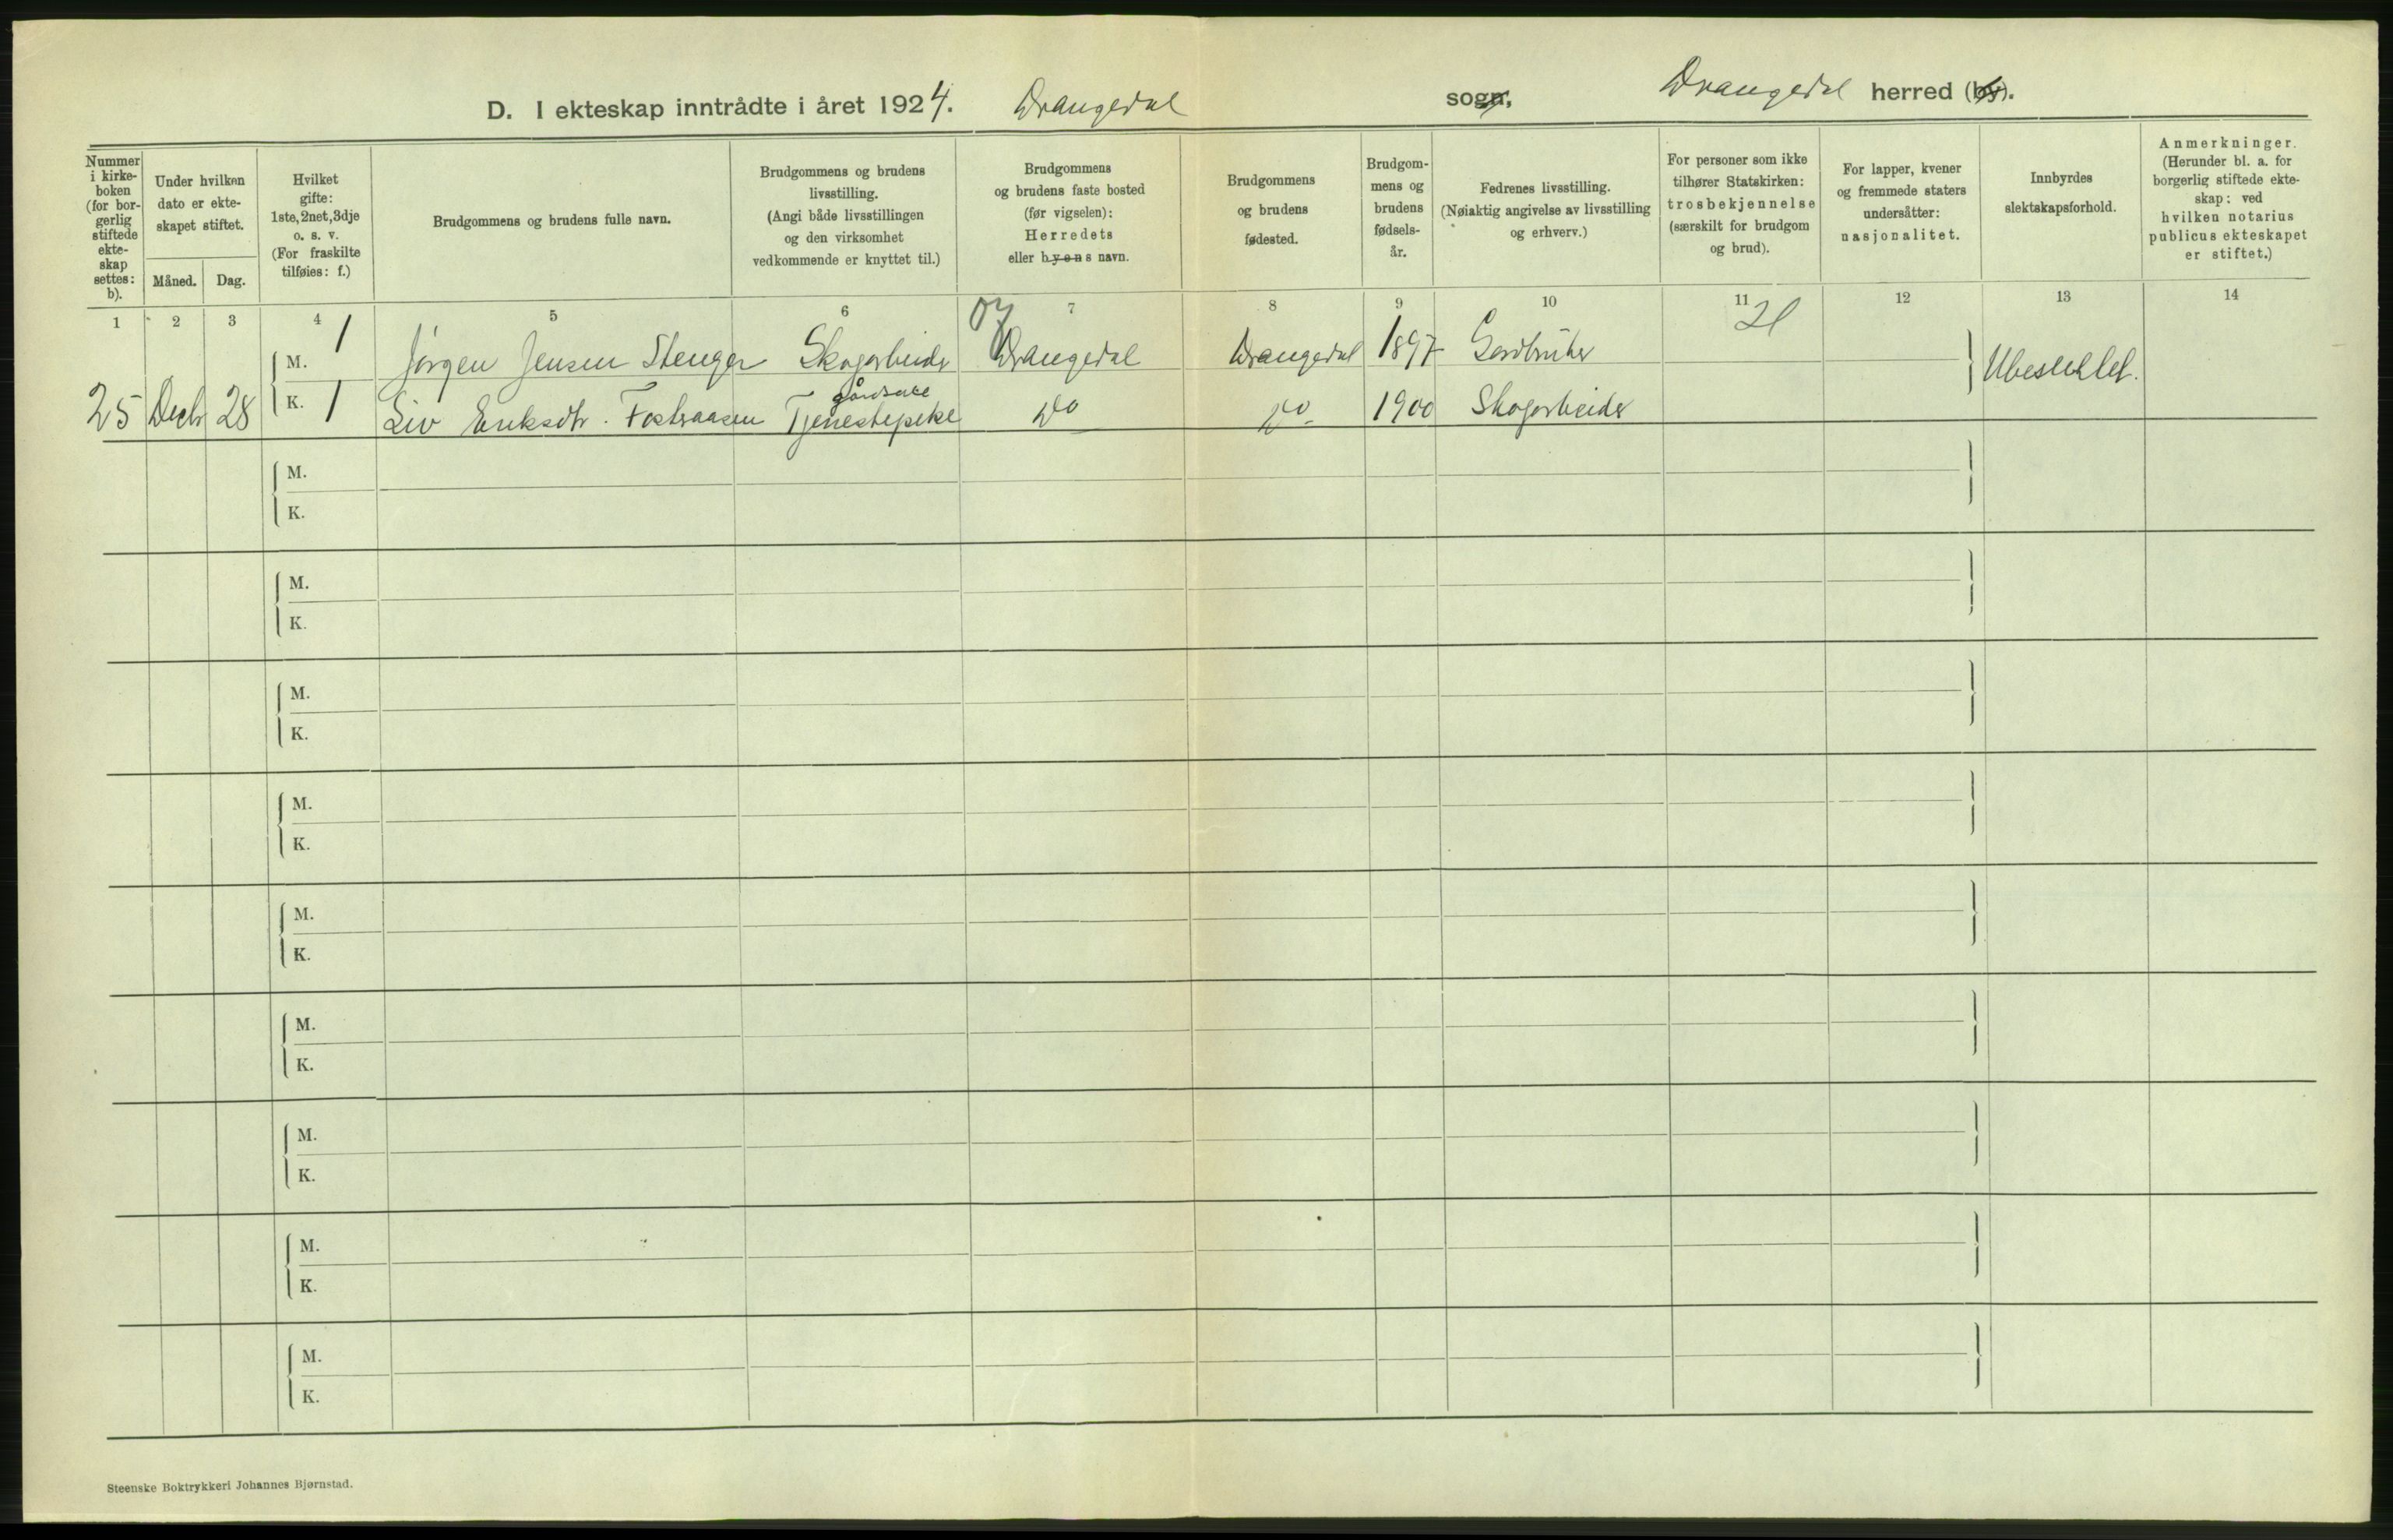 D. I ekteskap inntrådte i året 1924. Drangedal sogn, Drangedal herred (by).
Nummer i kirkeboken (for borgerlig stiftede ekteskap settes: b).
Under hvilken dato er ekteskapet stiftet.
Måned. Dag.
Hvilket gifte: 1ste, 2net, 3dje o. s. v. (For fraskilte tilføies: f.)
Brudgommens og brudens fulle navn.
Brudgommens og brudens livsstilling. (Angi både livsstillingen og den virksomhet vedkommende er knyttet til.)
Brudgommens og brudens faste bosted (før vigselen): Herredets eller byens navn.
Brudgommens og brudens fødested.
Brudgommens og brudens fødselsår.
Fedrenes livsstilling. (Nøiaktig angivelse av livsstilling og erhverv.)
For personer som ikke tilhører Statskirken: trosbekjennelse (særskilt for brudgom og brud).
For lapper, kvener og fremmede staters undersåtter: nasjonalitet.
Innbyrdes slektskapsforhold.
Anmerkninger. (Herunder bl. a. for borgerlig stiftede ekteskap: ved hvilken notarius publicus ekteskapet er stiftet.)
1 2 3 4 5 6 7 8 9 10 11 12 13 14
M. 1 Jørgen Jensen Stenger Skogarbeider Drangedal Drangedal 1897 Gardbruker Ubeslektet.
gårdsarb
25 Decbr 28 K. 1 Liv Eriksdtr. Tjenestepike Do Do 1900 Skogarbeider
M.
K.
M.
K.
M.
K.
M.
K.
M.
K.
M.
K.
M.
K.
M.
K.
M.
K.
Steenske Boktrykkeri Johannes Bjørnstad.